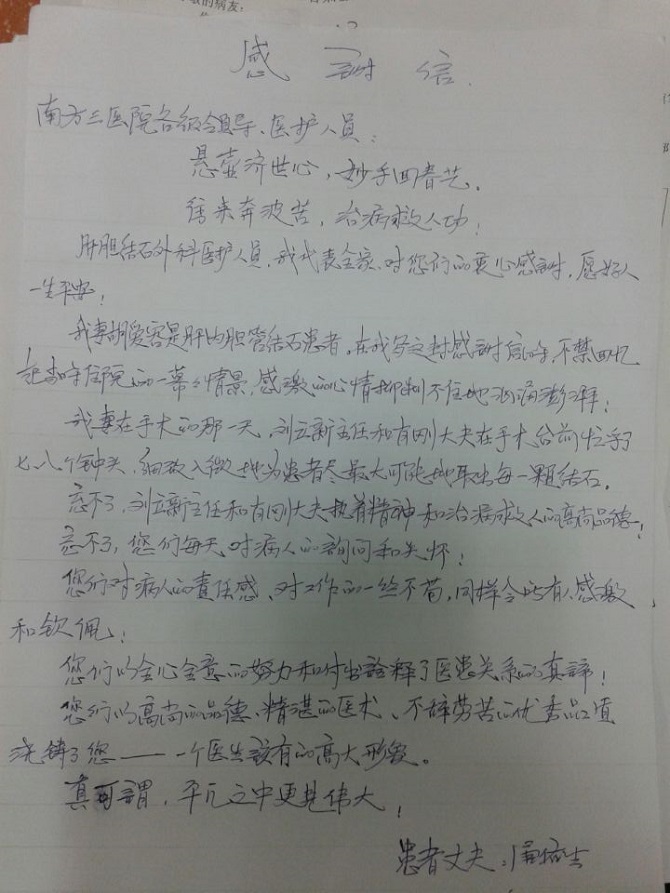 的病友,
感谢信
南方三医院各级领导、医护人员:
悬壶济世心,妙手回春艺。
往来奔波苦,治病救人功!
肝胆结石外科医护人员,我代表全家,对您们的衷心感谢,愿好人
一生平安!
我妻胡爱容是肝内胆管结石患者,在我写这封感谢信时,不禁回忆
起当时住院的一幕幕情景,感激的心情抑制不住地汹涌澎湃!
我妻在手术的那一天,刘立新主任和有刚大夫在手术台前忙了
七、八个钟头,细致入微地为患者尽最大可能地取出每一颗结石。
忘不了,刘立新主任和有刚大夫执着精神和治病救人的高尚品德!
忘不了,您们每天对病人的询问和关怀!
您们对病人的责任感、对工作的一丝不苟,同样令所有人感激
和钦佩!
您们的全心全意的努力和付出诠释了医患关系的真谛!
您们的高尚的品德、精湛的医术、不辞劳苦的优秀品质
浇铸了您——一个医生该有的高大形象。
真可謂,平凡之中更見伟大!
患者丈夫: